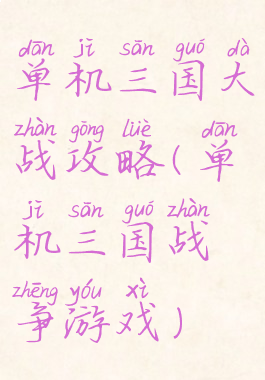 dān jī sān guó dà
单机三国大
zhàn gōng lüè dān
战攻略(单
jī sān guó zhàn
机三国战
zhēng yóu xì
争游戏)